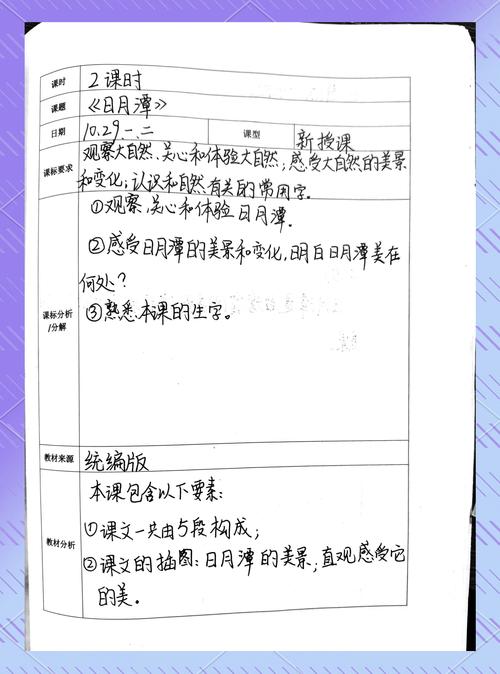 课时 2课时
课题 《日月潭》
日期 10.29一、二 课型 新授课
课标要求 观察大自然、关心和体验大自然;感受大自然的美景
和变化;认识和自然有关的常用字。
①观察、关心和体验日月潭.
②感受日月潭的美景和变化,明白日月潭美在
何处?
课标分析
/分解
③熟悉本课的生字。
教材来源 统编版
教材分析
本课包含以下要素:
①课文一共由5段构成;
②课文的插图:日月潭的美景;直观感受它
的美。